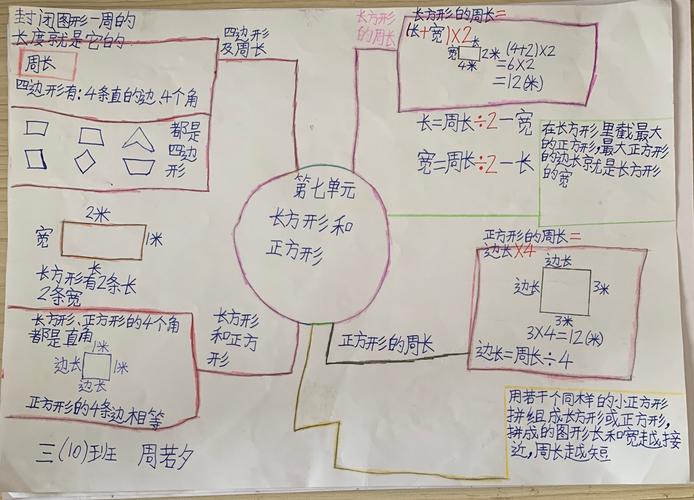 封闭图形一周的
长度就是它的
周长
四边形有:4条直的边,4个角
都是
四边
形
四边形
及周长
2米
宽
1米
长
长方形有2条长
2条宽
长方形、正方形的4个角
都是直角
1米
边长
1米
边长
正方形的4条边相等
长方形
和正方
形
三(10)班 周若夕
第七单元
长方形和
正方形
长方形
的周长
长方形的周长=
(长+宽)×2
长
宽
2米
4米
(4+2)×2
=6×2
=12(米)
长=周长÷2-宽
宽=周长÷2-长
在长方形里截最大
的正方形,最大正方形
的边长就是长方形
的宽
正方形的周长
正方形的周长=
边长×4
边长
边长
3米
3米
3×4=12(米)
边长=周长÷4
用若干个同样的小正方形
拼组成长方形或正方形,
拼成的图形长和宽越接
近,周长越短